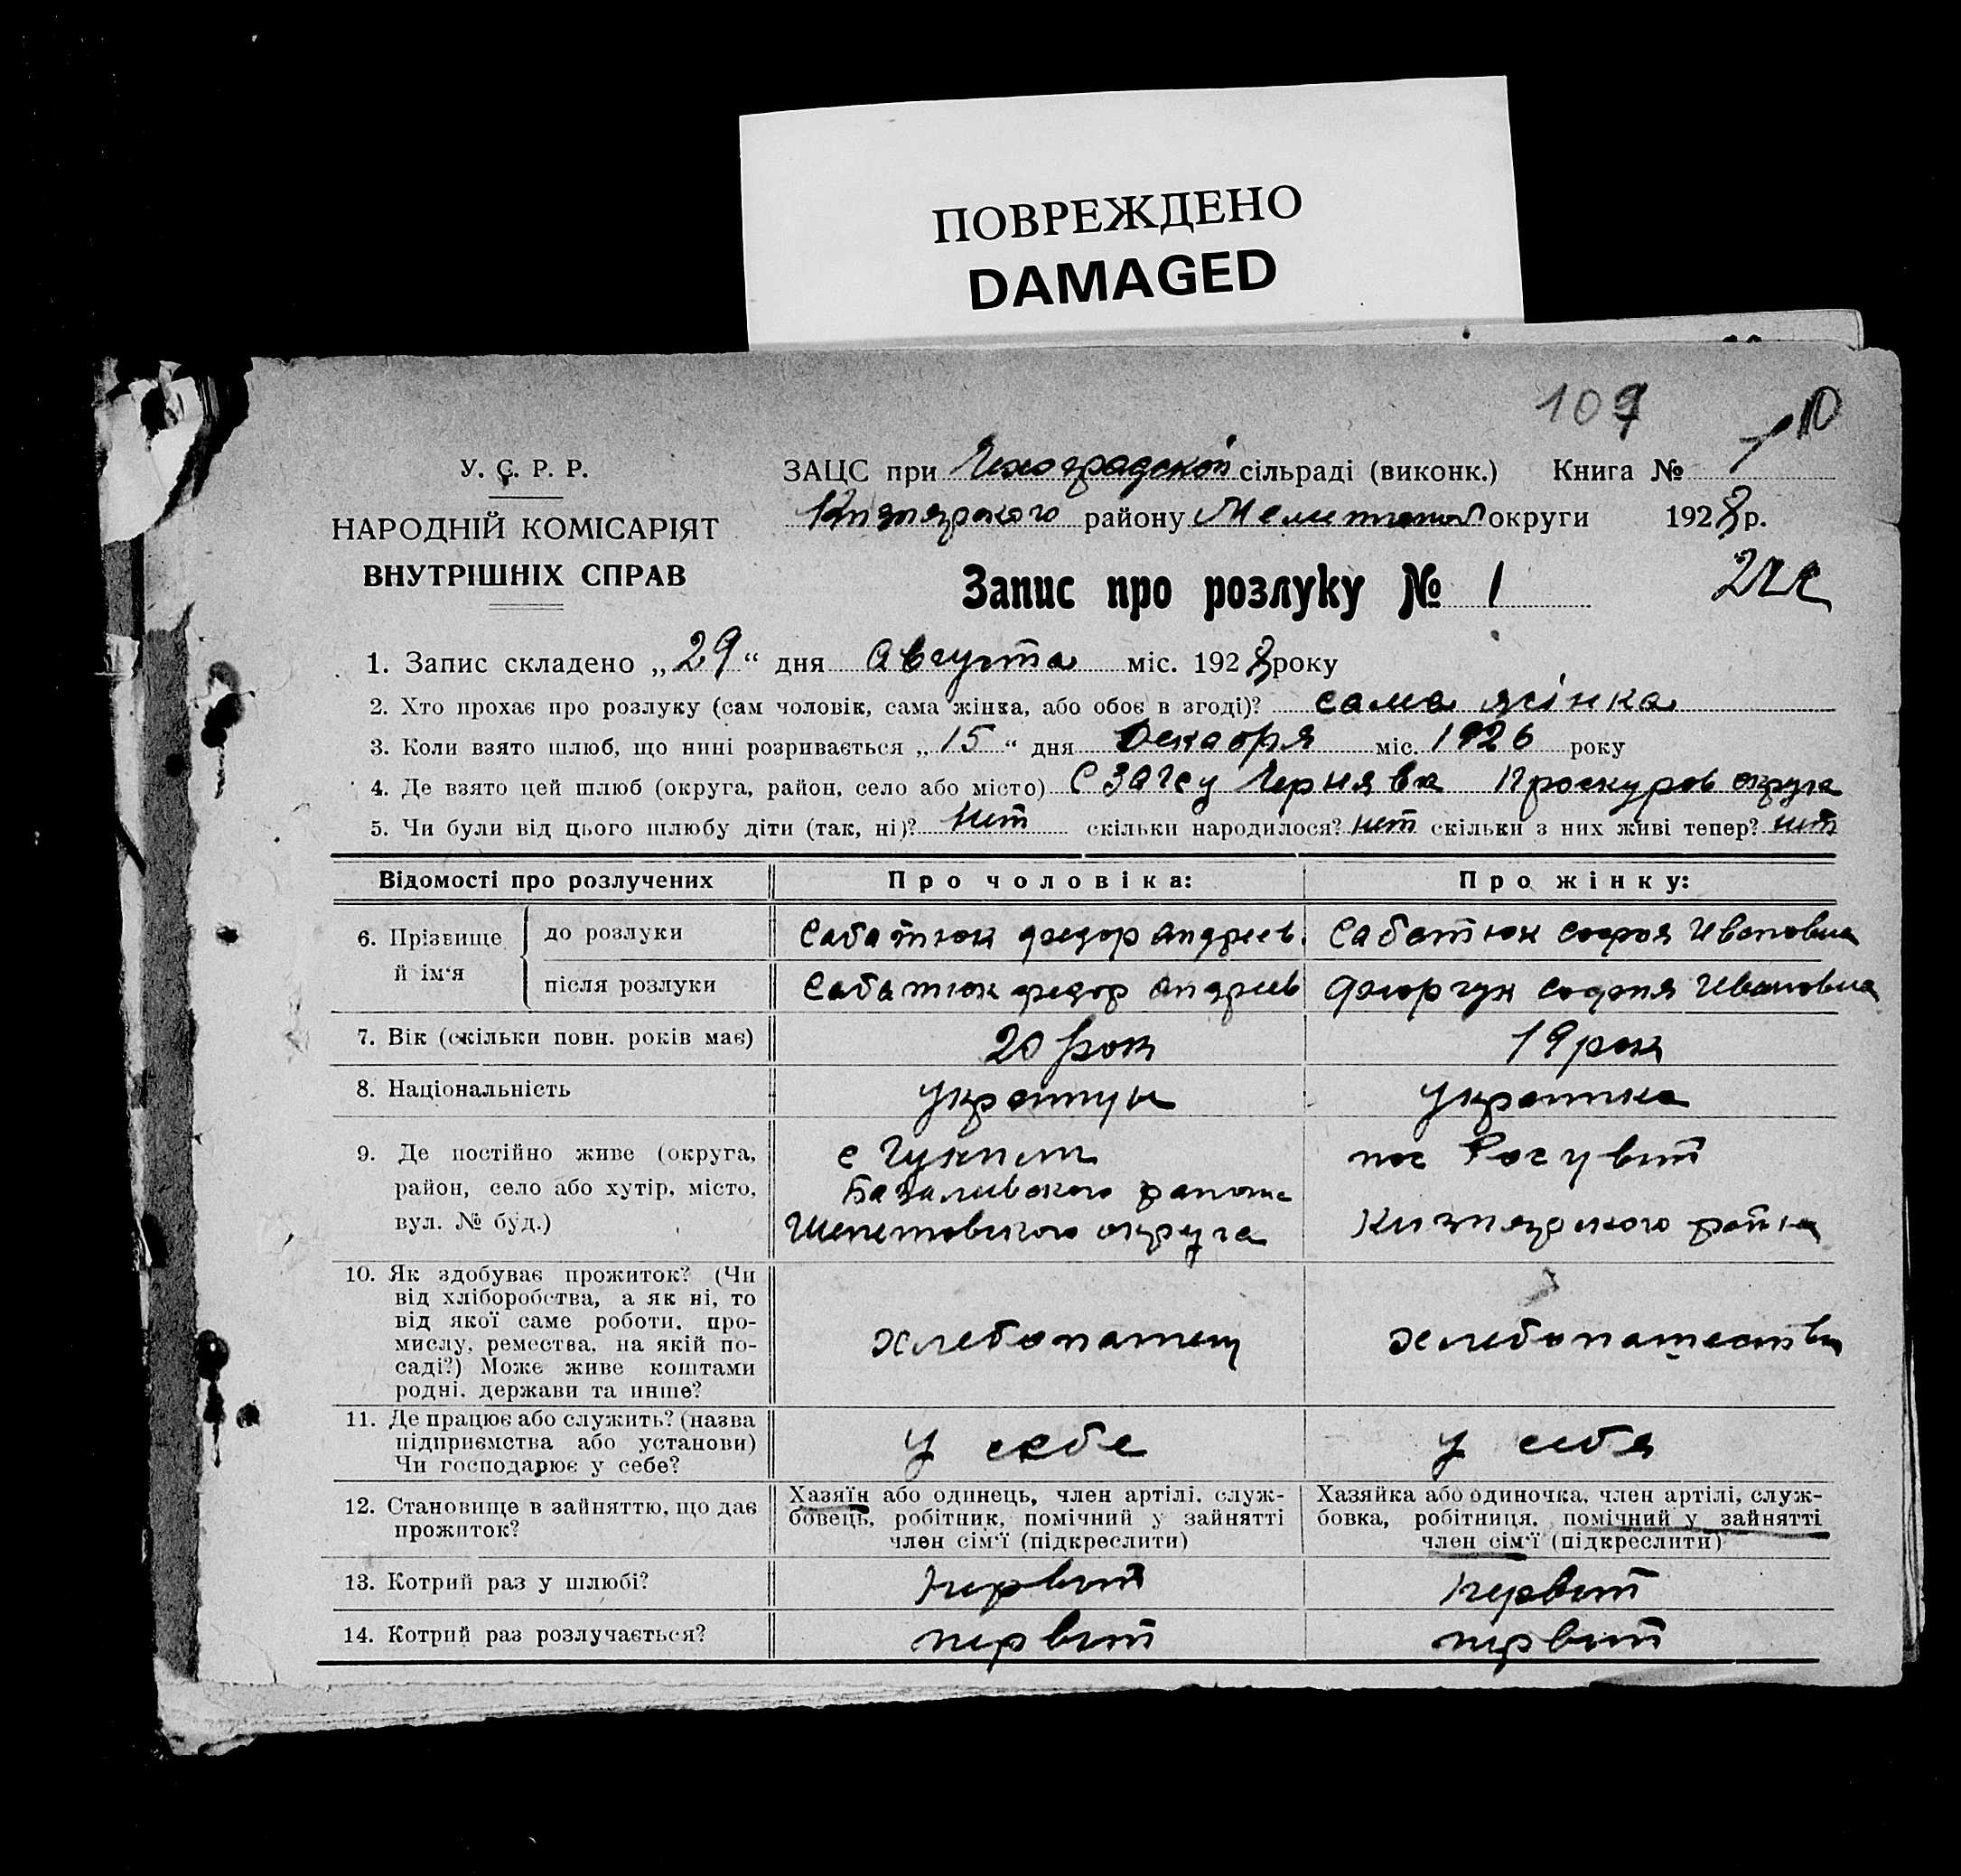 ПОВРЕЖДЕНО
DAMAGED
109
У. С. Р. Р.
НАРОДНІЙ КОМІСАРІЯТ
ВНУТРІШНІХ СПРАВ
ЗАЦС при Чехоградской сільраді (виконк.) Книга № 1
Кизиярского району Мелитопол округи 1928 р.
Запис про розлуку № 1
1. Запис складено „29“ дня Августа міс. 1928 року
2. Хто прохає про розлуку (сам чоловік, сама жінка, або обоє в згоді)? сама жінка
3. Коли взято шлюб, що нині розривається „15“ дня Декабря міс. 1926 року
4. Де взято цей шлюб (округа, район, село або місто) с Чернявка Проскуров округа
5. Чи були від цього шлюбу діти (так, ні)? нет скільки народилося? нет скільки з них живі тепер? нет
Відомості про розлучених Про чоловіка: Про жінку:
6. Прізвище й ім‘я до розлуки Сабатюк Федор Андреев. Сабатюк София Ивановна
після розлуки Сабатюк Федор Андреев София Ивановна
7. Вік (скільки повн. років має) 20 рок 19 рок
8. Національність
9. Де постійно живе (округа, район, село або хутір, місто, вул. № буд.)
Базалийского района
Шепетовского округа Кизиярского
10. Як здобуває прожиток? (Чи
від хліборобства, а як ні, то
від якої саме роботи, про-
мислу, ремества, на якій по-
саді?) Може живе коштами
родні, держави та инше?
11. Де працює або служить? (назва
підприємства або установи)
Чи господарює у себе?
у себе у себя
12. Становище в зайняттю, що дає
прожиток?
Хазяїн або одинець, член артілі, служ-
бовець, робітник, помічний у зайнятті
член сім‘ї (підкреслити)
Хазяйка або одиночка, член артілі, служ-
бовка, робітниця, помічний у зайнятті
член сім‘ї (підкреслити)
13. Котрий раз у шлюбі? первий первий
14. Котрий раз розлучається? первий первий